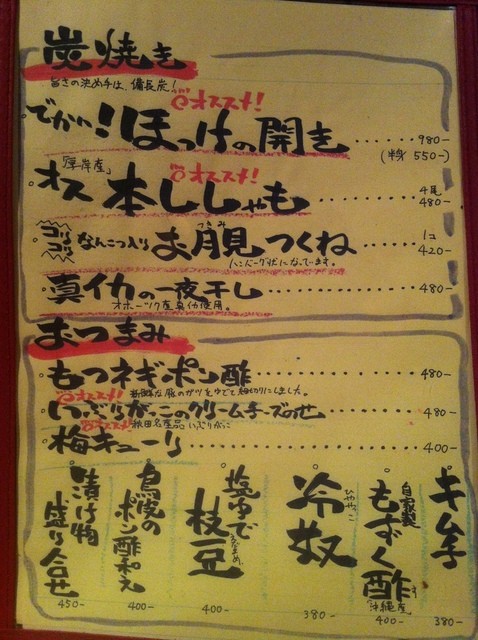 炭焼き
旨さの決め手は、備長炭!
オススメ!
でかい!ほっけの開き 980-
(半身 550-)
「厚岸産」
オススメ!
オス本ししゃも 4尾 480-
コリコリ なんこつ入り お月見つくね 1コ 420-
つきみ
ハンバーグ状になっています。
真イカの一夜干し 480-
オホーツク産真イカ使用。
おつまみ
もつネギポン酢 480-
新鮮な豚のガツをゆでて細切りにしました。
オススメ!
いぶりがっこのクリームチーズのせ 480-
オススメ! 秋田名産品 いぶりがっこ
梅キューり 400-
キムチ 380-
自家製 もずく酢 「沖縄産」 400-
冷奴 ひややっこ 380-
塩ゆで 枝豆 えだまめ 400-
鳥皮のポン酢和え 400-
漬け物盛り合せ 450-